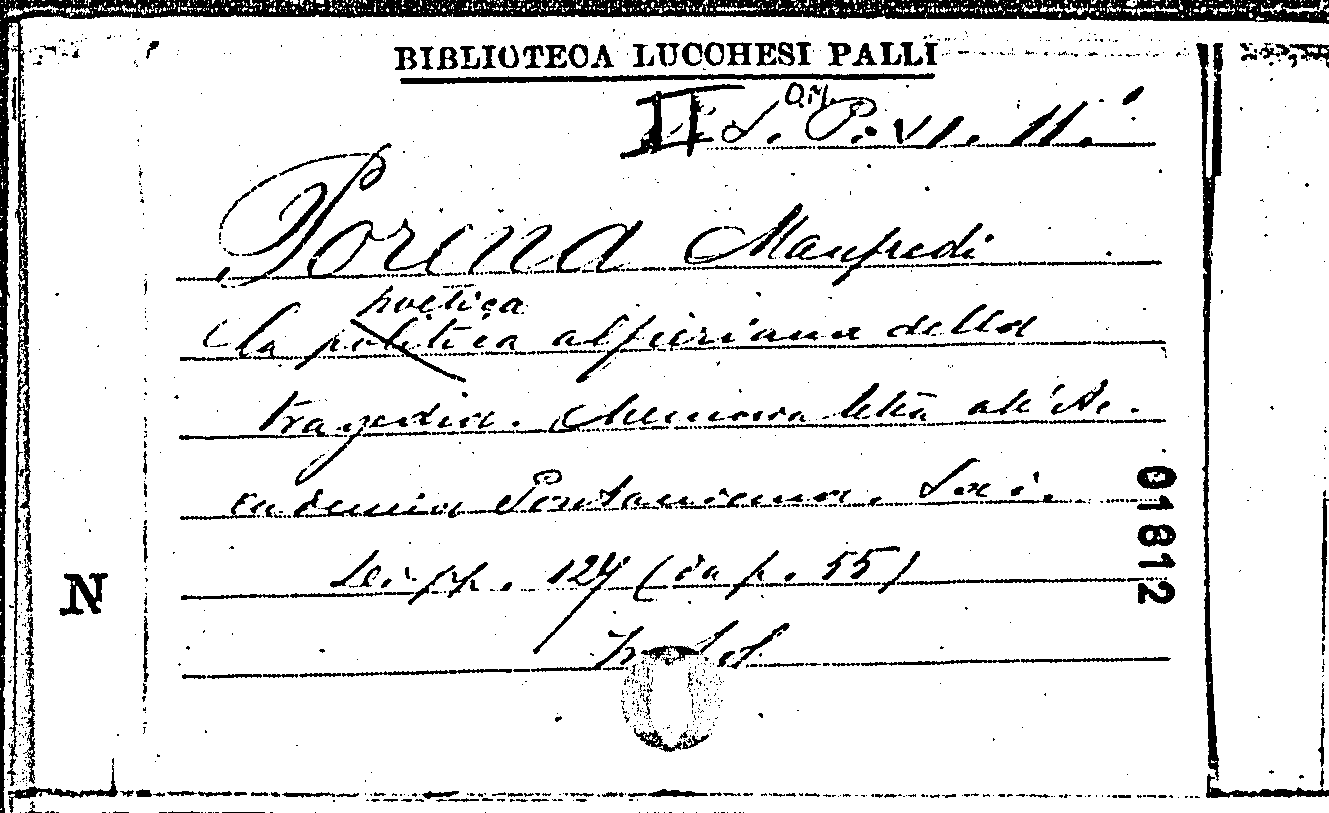 BIBLIOTECA LUCCHESI PALLI
O.M.
II L. P. VI. 11.
Porena Manfredi
poetica
La politica alfieriana della
tragedia. Memoria letta all'Ac.
cademia Pontaniana.
di pp. 124 (da p. 55)
N
01812